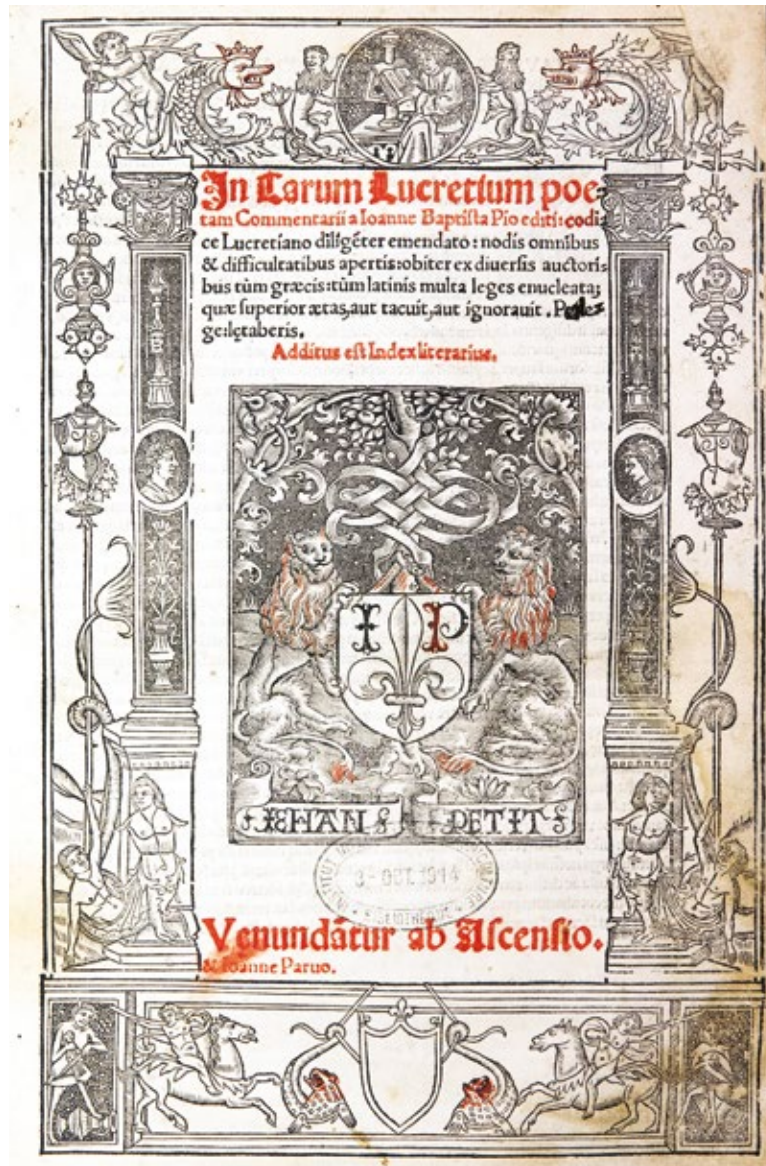 In Carum Lucretium poe-
tam Commentarii a Ioanne Baptista Pio editi: codi-
ce Lucretiano diligẽter emendato: nodis omnibus
& difficultatibus apertis: obiter ex diuersis auctori-
bus tùm græcis: tùm latinis multa leges enucleata;
quæ superior ætas, aut tacuit, aut ignorauit. Perle-
ge: lętaberis.
Additus est Index literarius.
I P
IEHAN PETIT
3 - OCT. 1914
Venundãtur ab Ascensio.
& Ioanne Paruo.